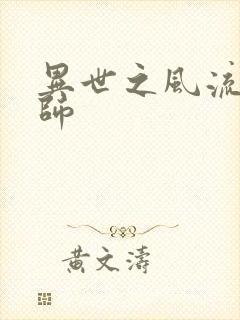 異世之風流
師
黃文濤